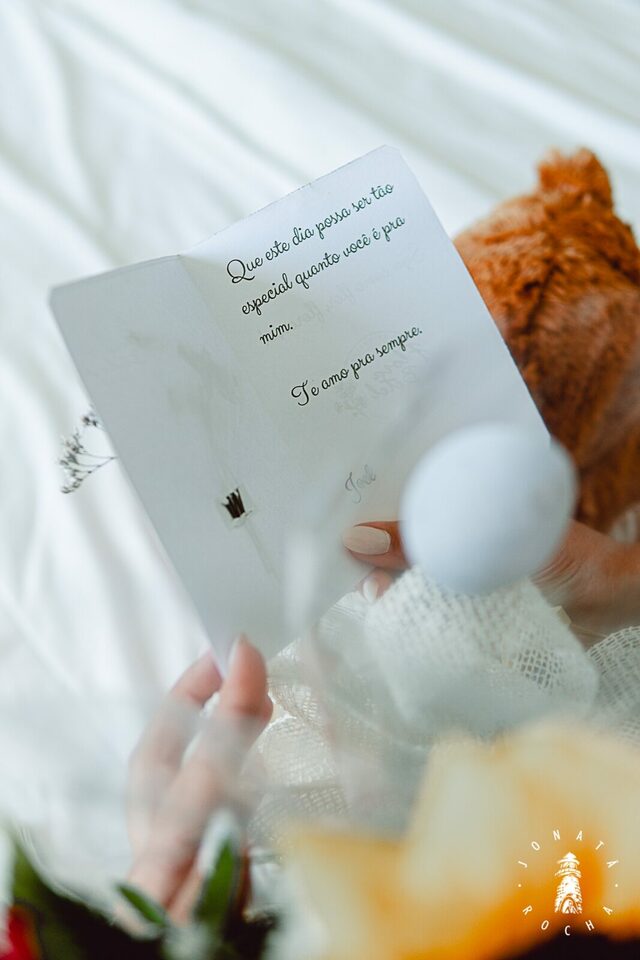 Que este dia possa ser tão
especial quanto você é pra
mim.
Te amo pra sempre.
Joel
JONATA
ROCHA